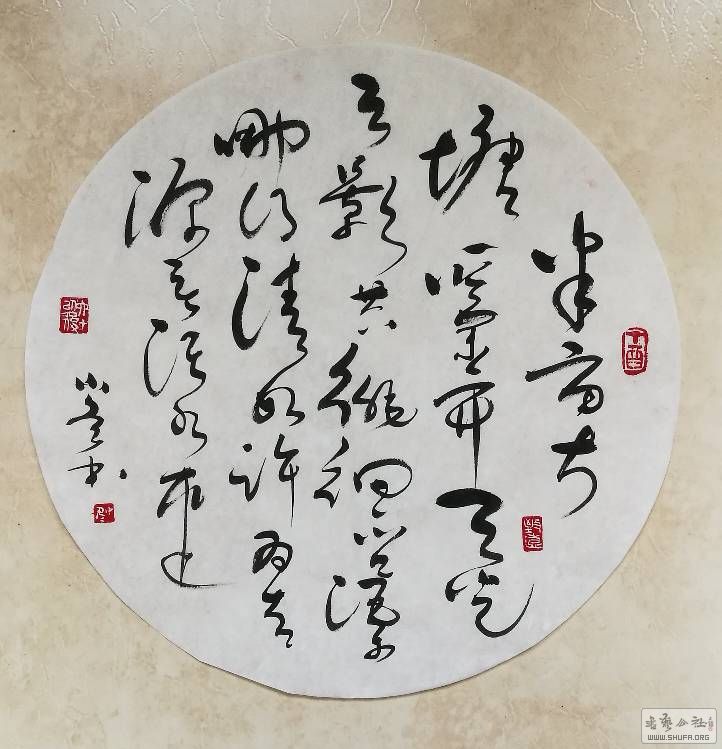 半畝方
塘一鑒開天光
云影共徘徊問渠
哪得清如許為有
源头活水來
书艺公社
WWW.SHUFA.ORG